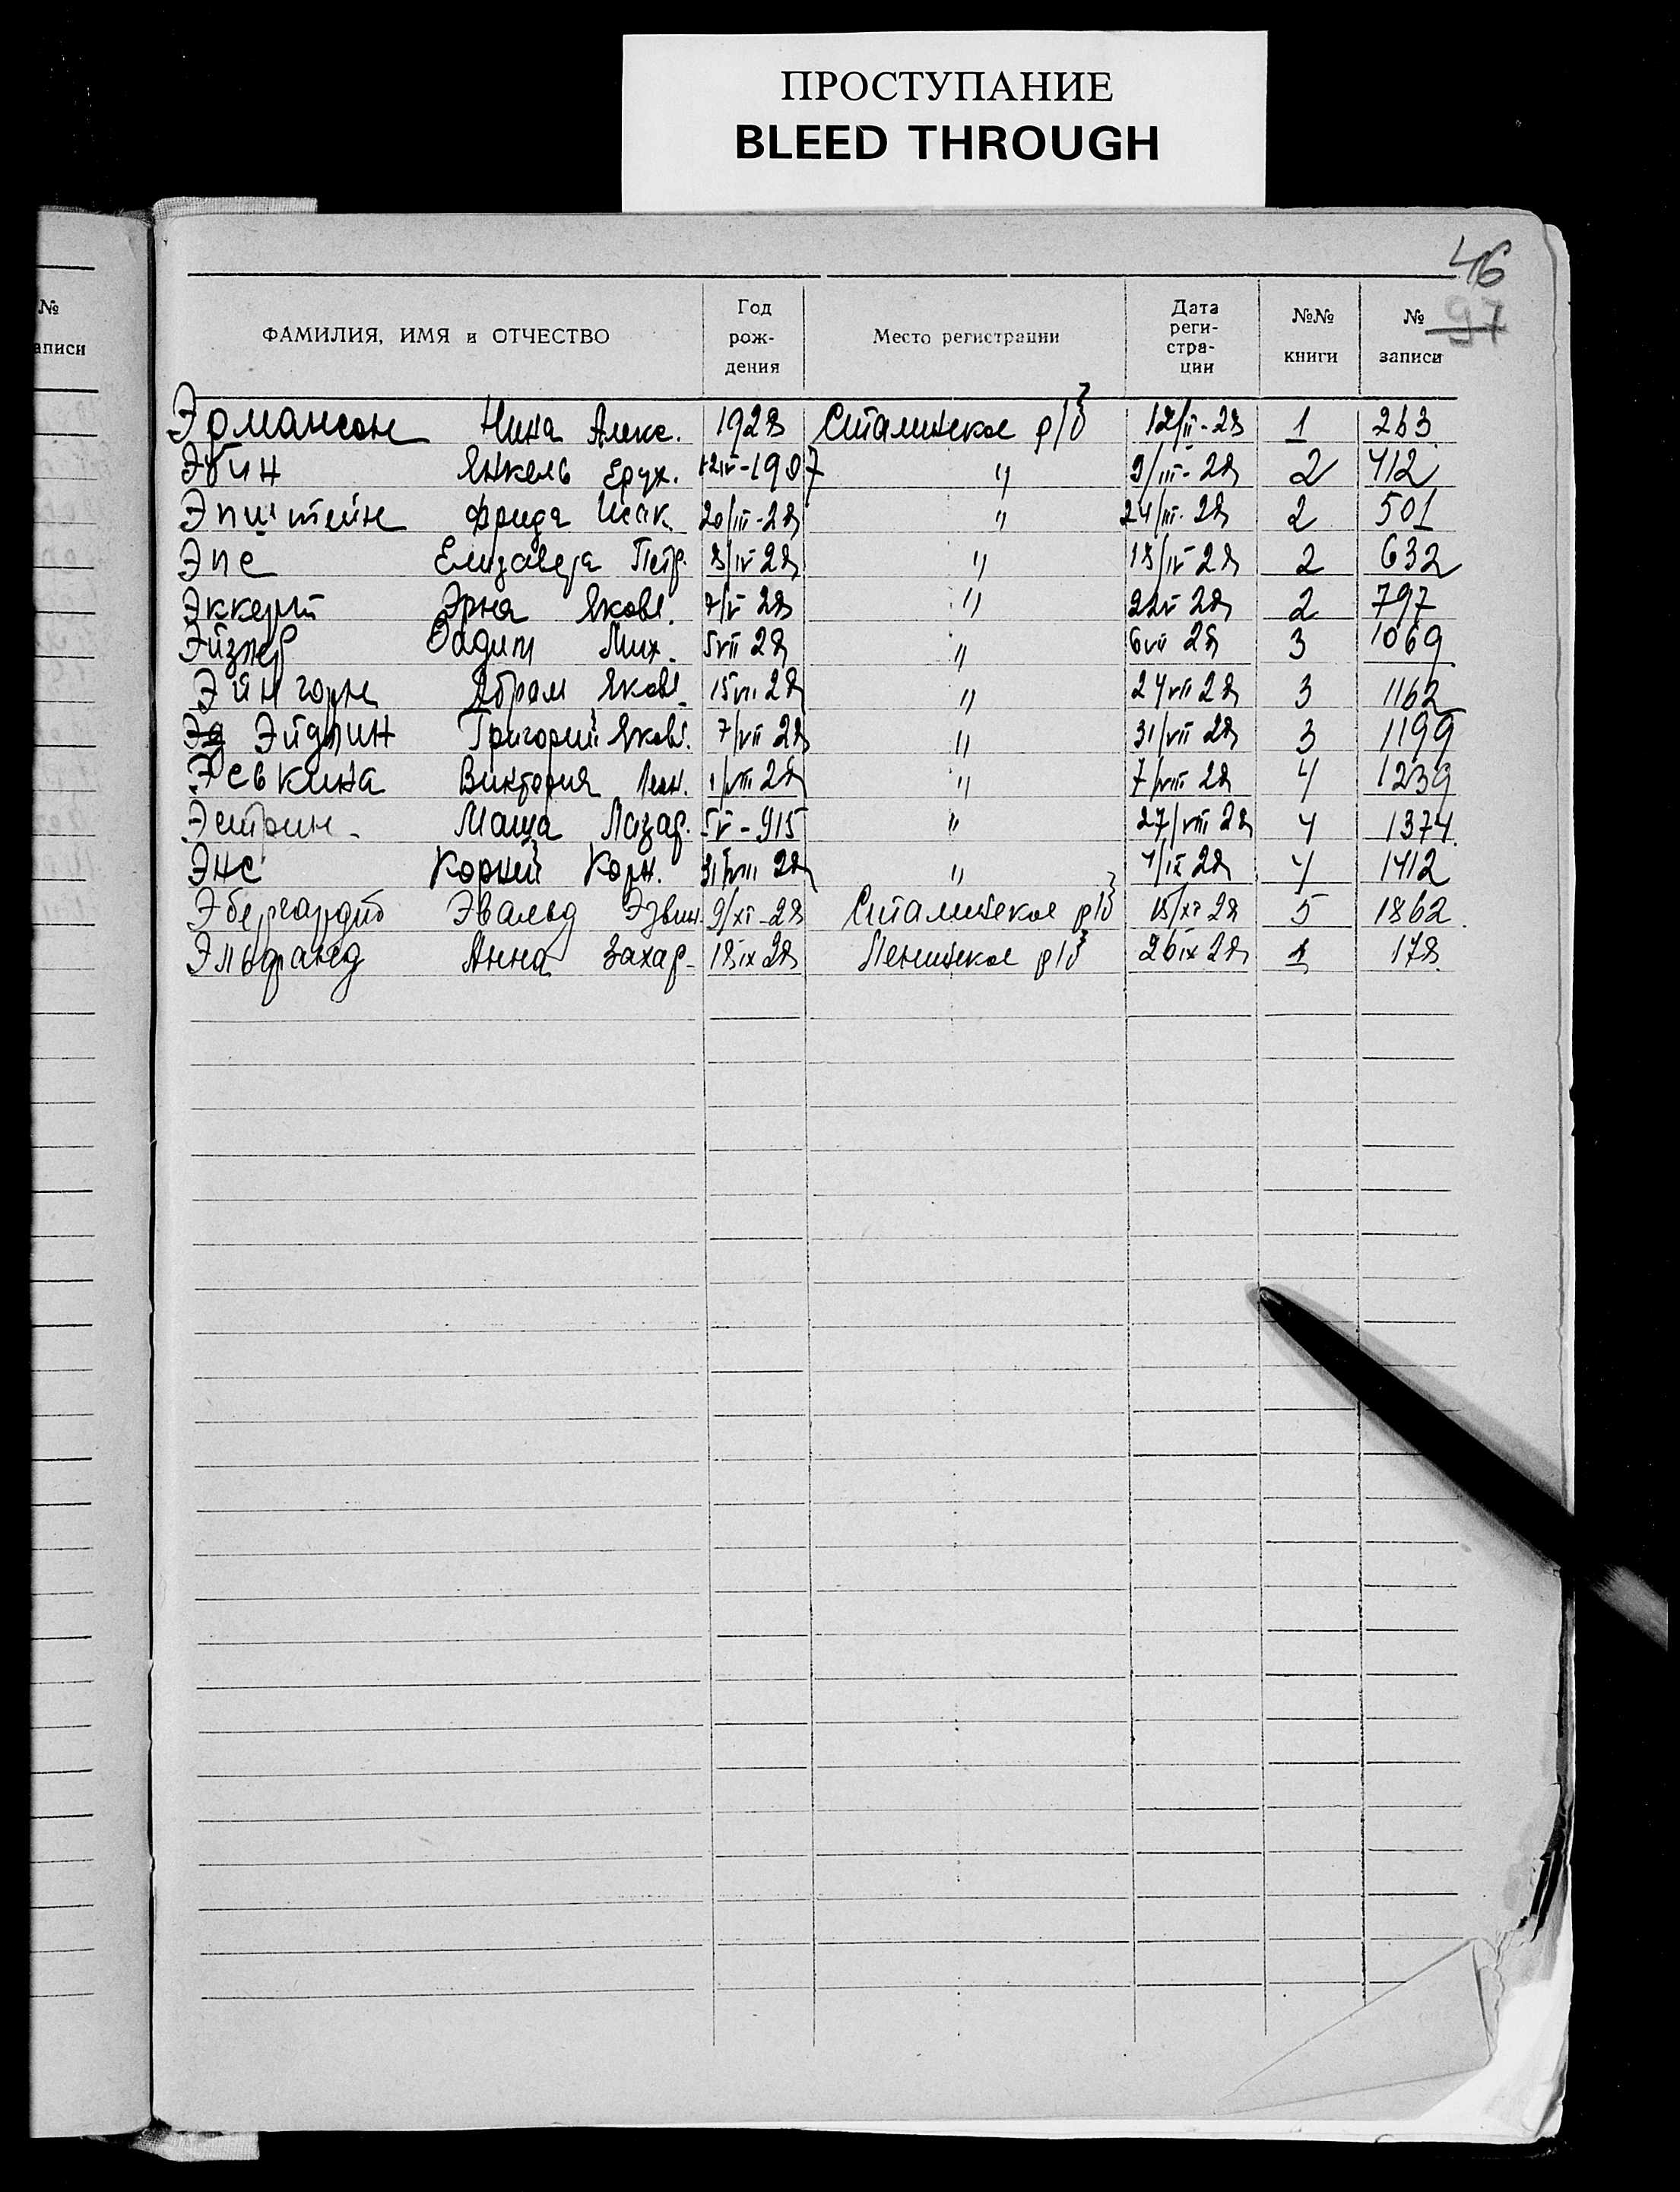 ПРОСТУПАНИЕ
BLEED THROUGH
46
97
№ записи
ФАМИЛИЯ, ИМЯ и ОТЧЕСТВО Год рождения Место регистрации Дата регистрации №№ книги № записи
Эрмансон Нина Алекс. 1928 Сталинское р/б 12/II-28 1 263
Эбин Янкель Ерух. 12IV-1907 " 9/III-28 2 412
Эпштейн Фрида Исак. 20/III-28 " 24/III-28 2 501
Эпс Елизавета Петр. 8/IV 28 " 18/IV 28 2 632
Эккерт Эрна Яковл. 7/V 28 " 22V 28 2 797
Эйзнер Вадим Мих. 5VII 28 " 6VII 28 3 1069
Эйнгорн Абрам Яковл. 15VII 28 " 24VII 28 3 1162
Эд Эйдлин Григорий Яковл. 7/VII 28 " 31/VII 28 3 1199
Эсвкина Виктория Леон. 1/VIII 28 " 7/VIII 28 4 1239
Эстрин Маша Лазар. 5V-915 " 27/VIII 28 4 1374
Энс Корней Корн. 31/VIII 28 " 4/IX 28 4 1412
Эбергардт Эвальд Эдвин. 9/XI-28 Сталинское р/б 15/XI 28 5 1862
Эльфранд Анна Захар. 18IX 28 Ленинское р/б 26IX 28 1 178